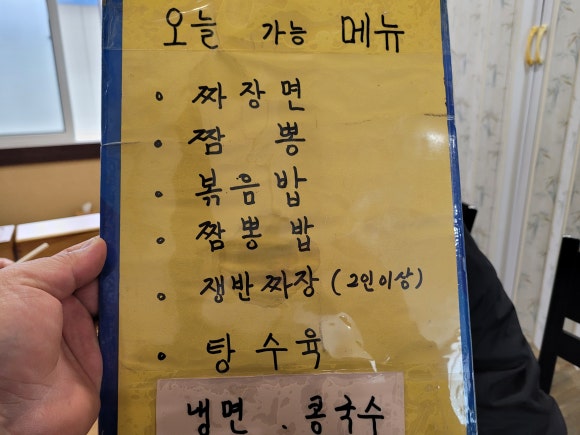 오늘 가능 메뉴
• 짜장면
• 짬뽕
• 볶음밥
• 짬뽕밥
• 쟁반짜장 (2인이상)
• 탕수육
냉면 . 콩국수